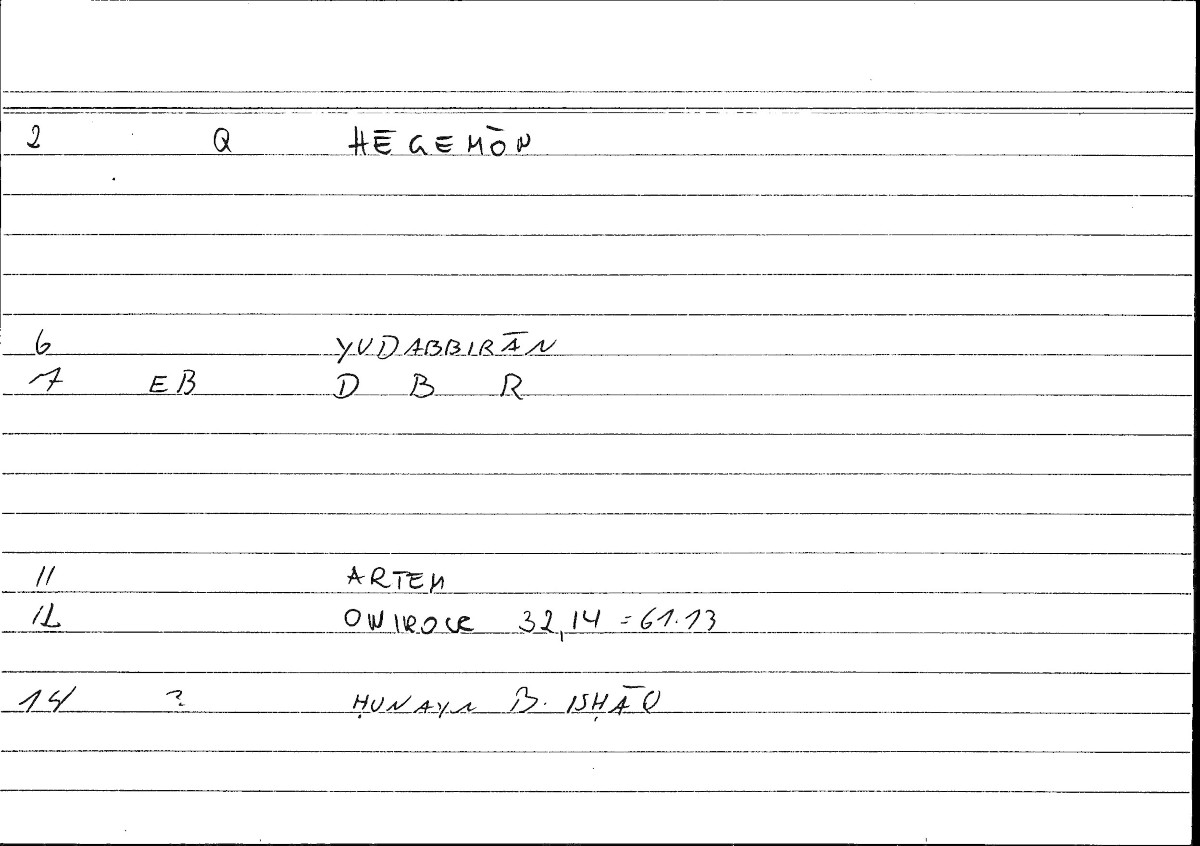 2 Q HĒGEMŌN
6 YUDABBIRĀN
7 EB D B R
11 ARTEM
12 ONIROCR 32,14 = 61.13
14 ? ḤUNAYN B. ISḤĀQ